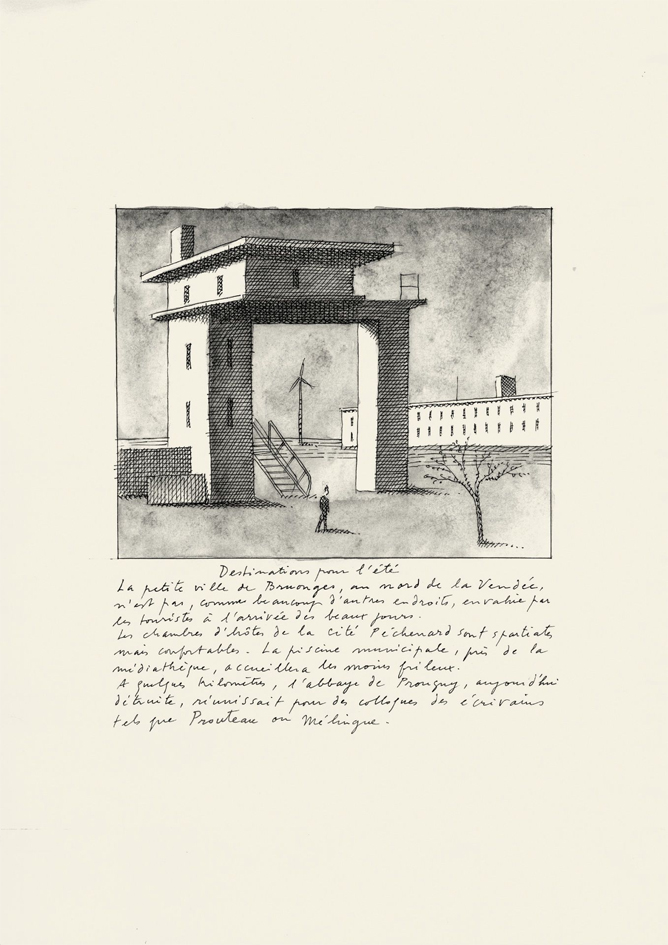 Destinations pour l'été
La petite ville de Bruonges, au nord de la Vendée,
n'est pas, comme beaucoup d'autres endroits, envahie par
les touristes à l'arrivée des beaux jours.
Les chambres d'hôtes de la cité Péchenard sont spartiates
mais confortables. La piscine municipale, près de la
médiathèque, accueillera les moins frileux.
A quelques kilomètres, l'abbaye de Prouguy, aujourd'hui
détruite, réunissait pour des colloques des écrivains
tels que Prouteau ou Mélingue.